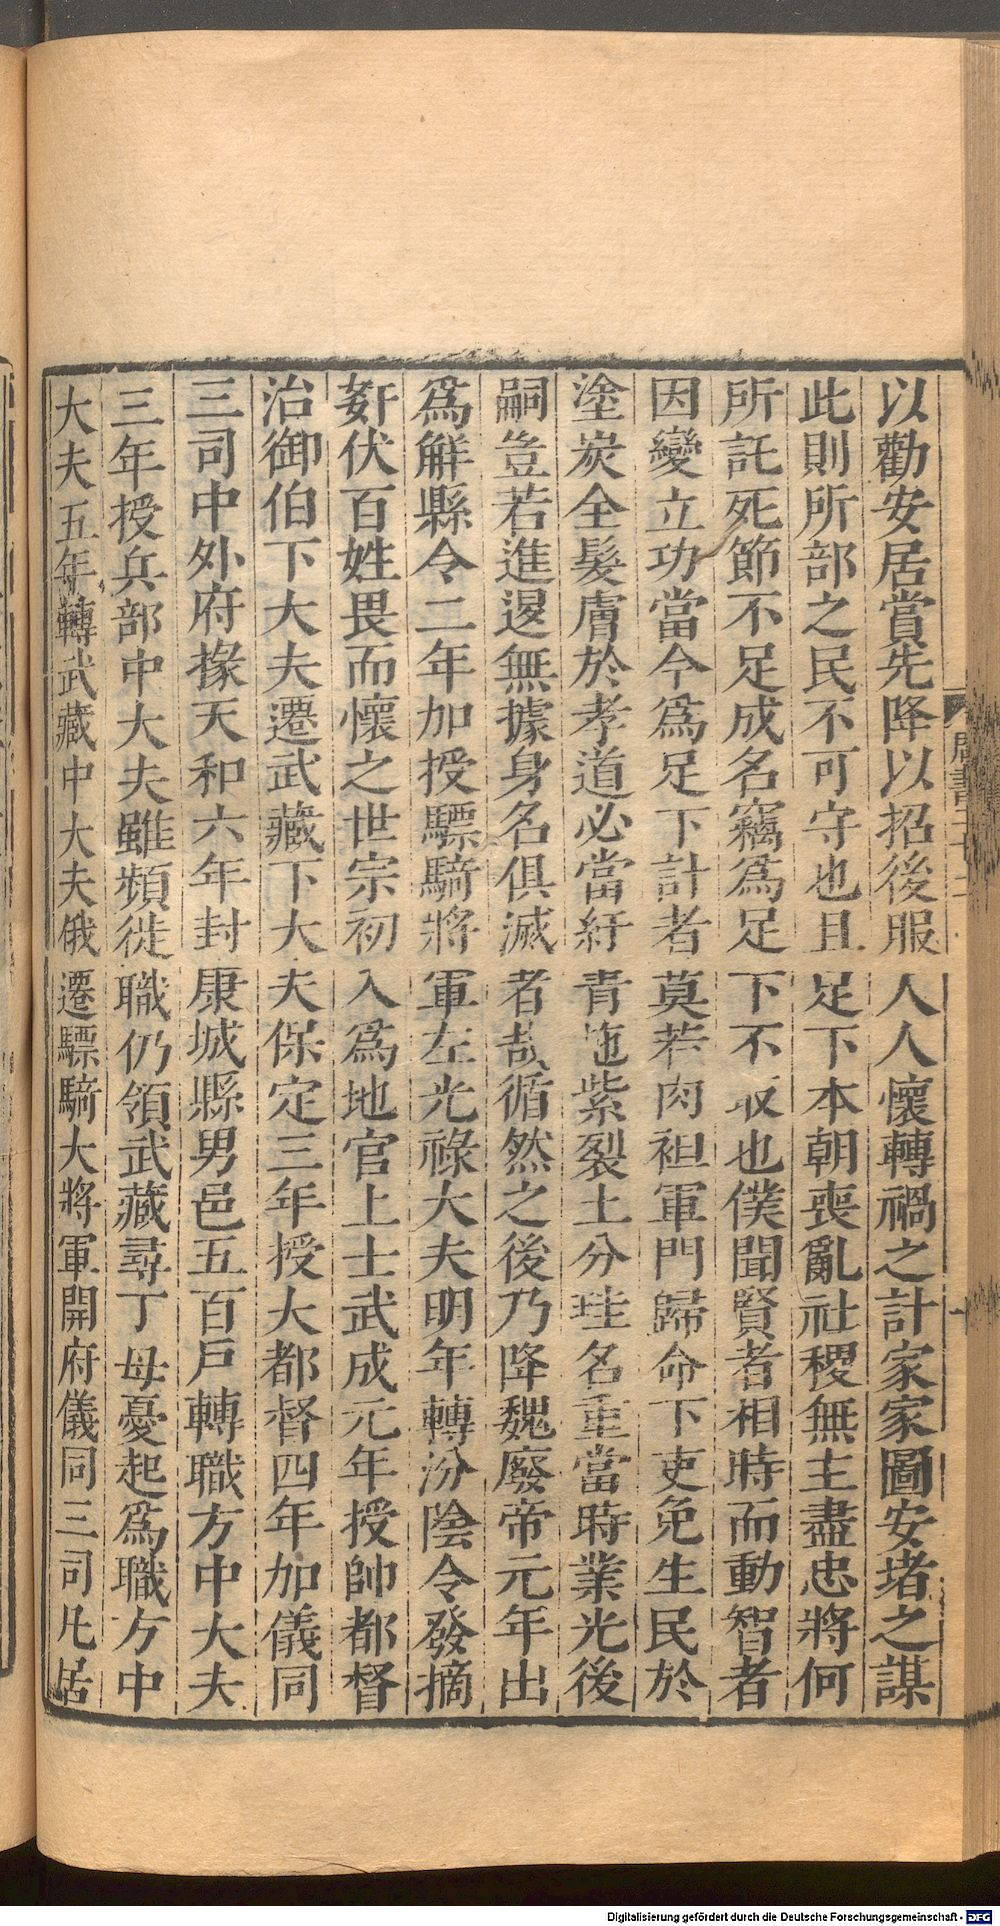 以勸安居賞先降以招後服人人懷轉禍之計家家圖安堵之謀
此則所部之民不可守也且足下本朝喪亂社稷無主盡忠將何
所託死節不足成名竊為足下不取也僕聞賢者相時而動智者
因變立功當今爲足下計者莫若肉袒軍門歸命下吏免生民於
塗炭全髮膚於孝道必當紆青拖紫裂土分珪名重當時業光後
嗣豈若進退無據身名俱滅者哉循然之後乃降魏廢帝元年出
爲解縣令二年加授驃騎將軍左光祿大夫明年轉汾陰令發摘
姧伏百姓畏而懷之世宗初入爲地官上士武成元年授帥都督
治御伯下大夫遷武藏下大夫保定三年授大都督四年加儀同
三司中外府掾天和六年封康城縣男邑五百戶轉職方中大夫
三年授兵部中大夫雖頻徙職仍領武藏尋丁母憂起爲職方中
大夫五年轉武藏中大夫俄遷驃騎大將軍開府儀同三司凡居
周書
Digitalisierung gefördert durch die Deutsche Forschungsgemeinschaft - DFG